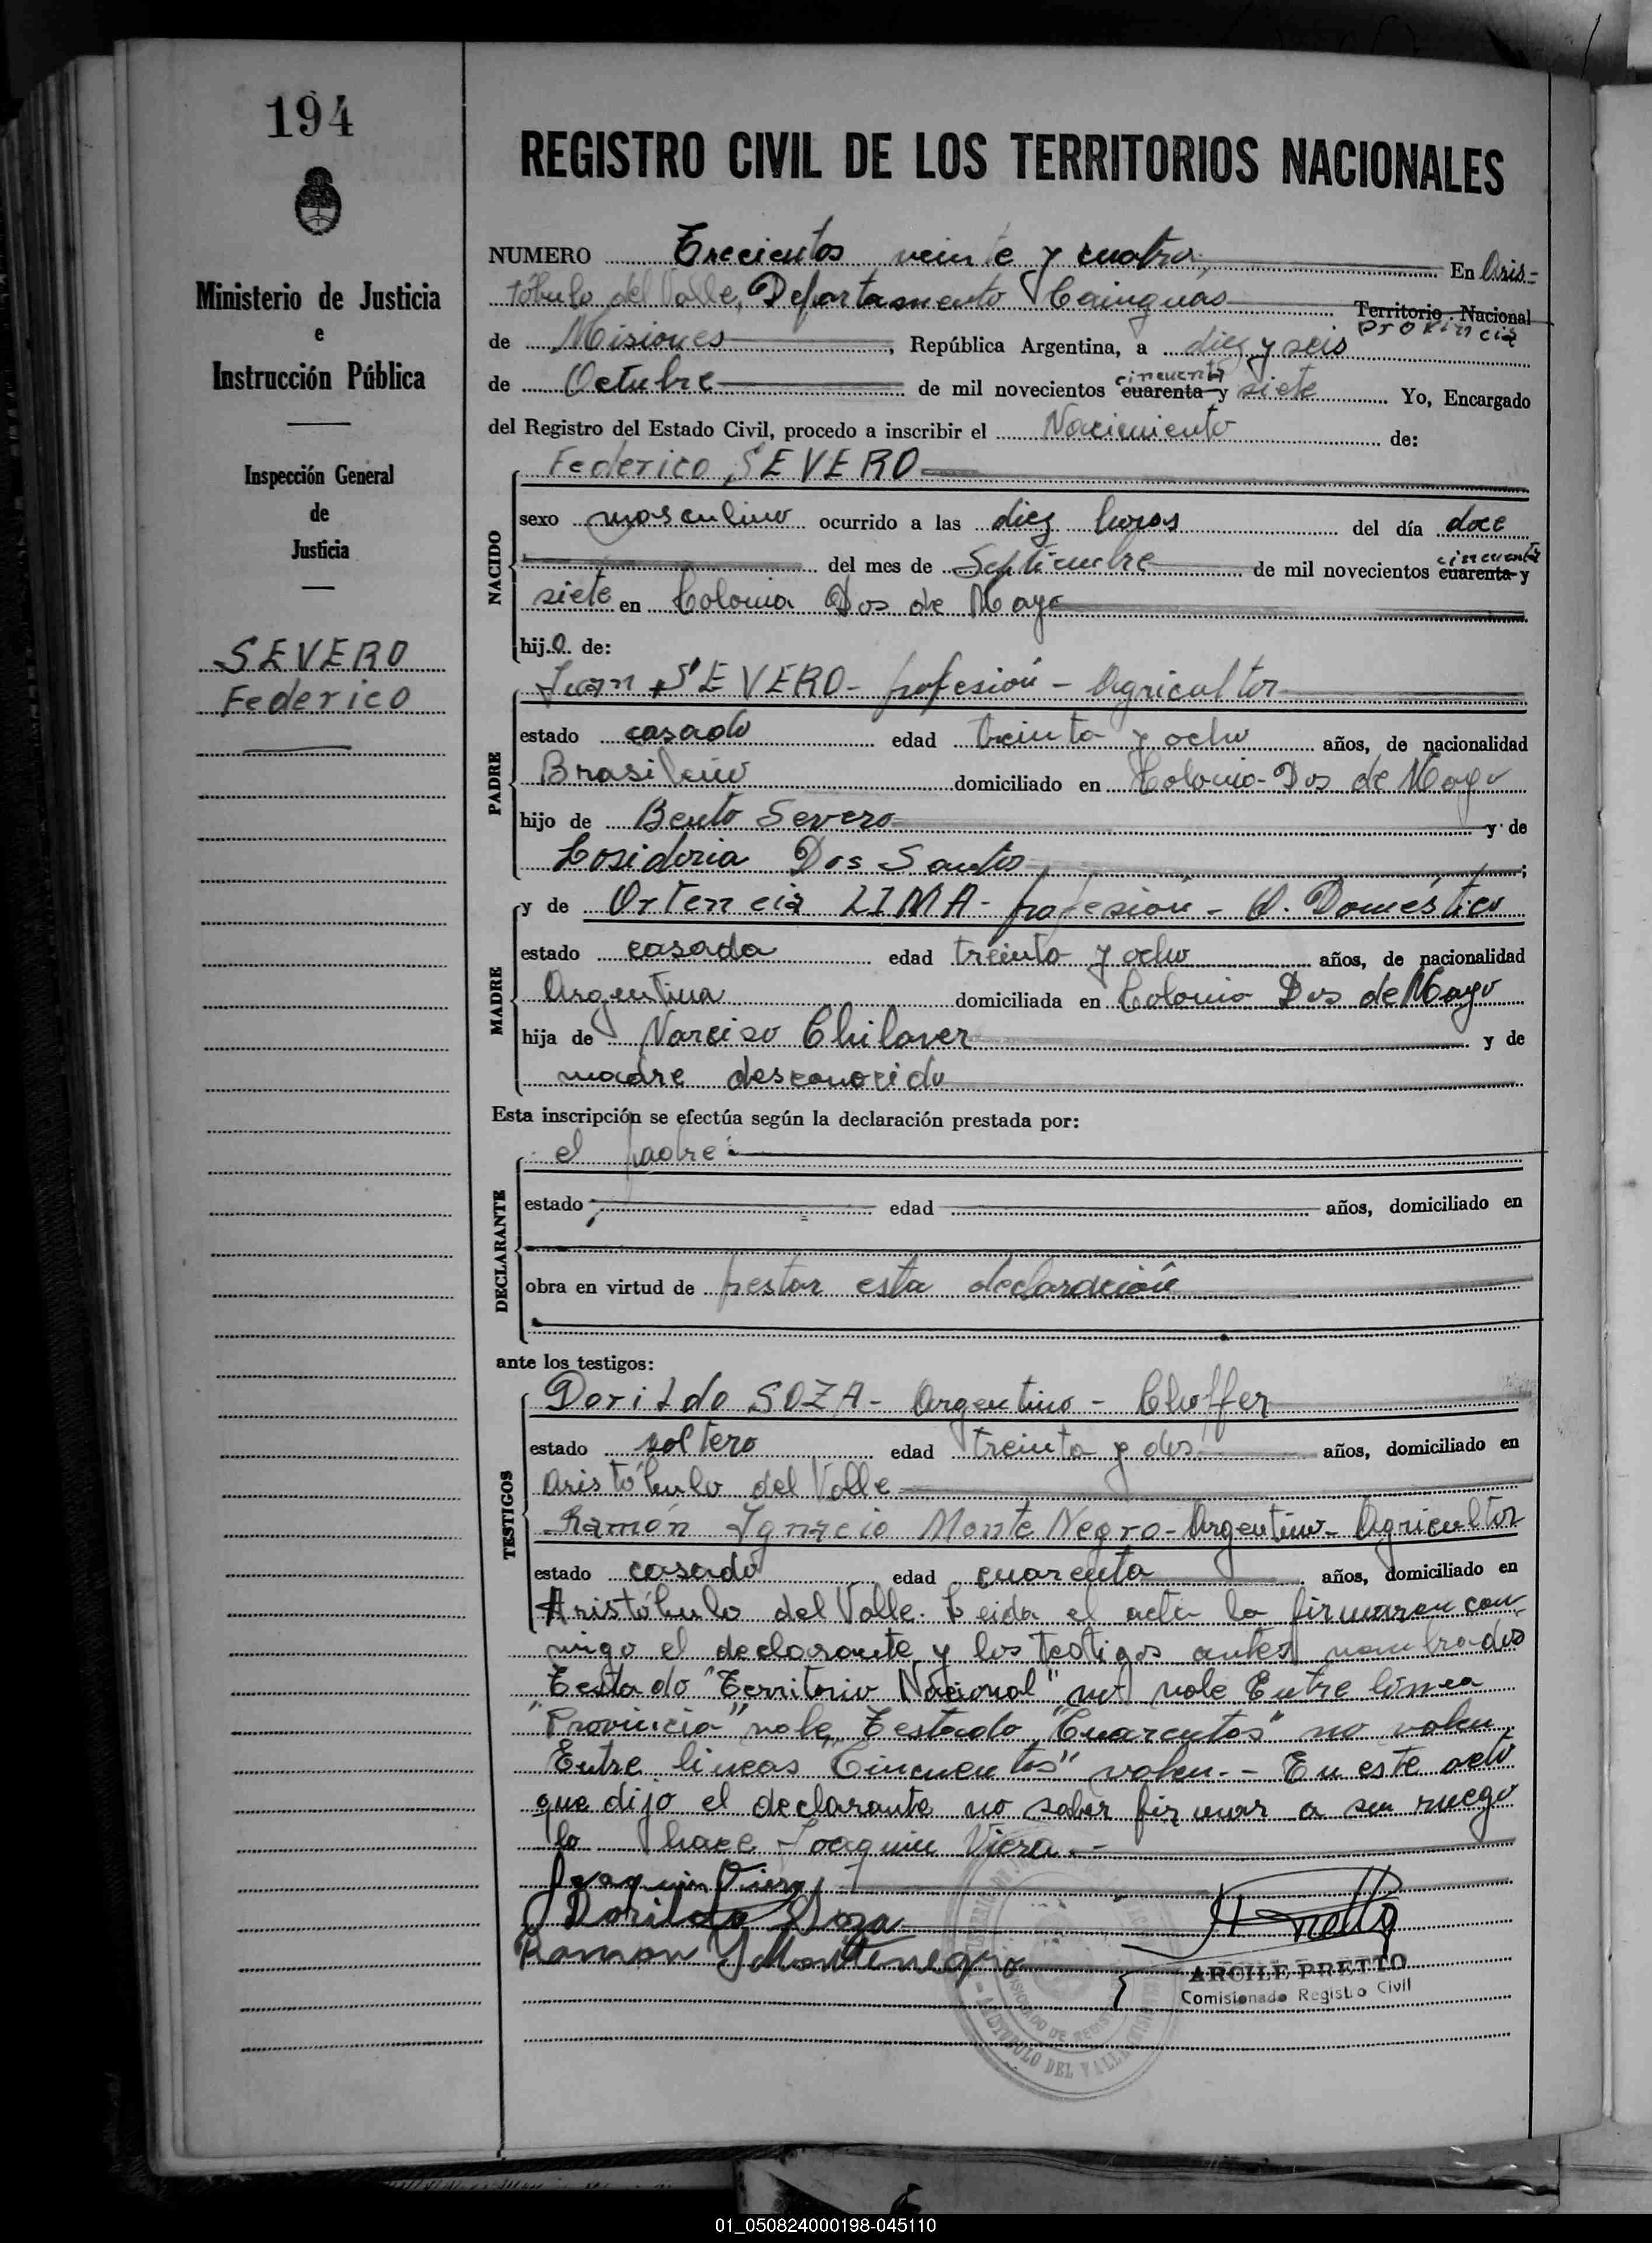 194
Ministerio de Justicia
e
Instrucción Pública
Inspección General
de
Justicia
SEVERO
Federico
REGISTRO CIVIL DE LOS TERRITORIOS NACIONALES
NUMERO Trecientos veinte y cuatro, En Aris-
tóbulo del Valle, Departamento Cainguás Territorio Nacional
provincia
de Misiones, República Argentina, a diez y seis
cincuenta
de Octubre de mil novecientos cuarenta y siete Yo, Encargado
del Registro del Estado Civil, procedo a inscribir el Nacimiento de:
Federico, SEVERO
NACIDO
sexo masculino ocurrido a las diez horas del día doce
cincuenta
del mes de Septiembre de mil novecientos cuarenta y
siete en Colonia Dos de Mayo
hijo de:
PADRE
Juan SEVERO - profesión - Agricultor
estado casado edad treinta y ocho años, de nacionalidad
Brasileño domiciliado en Colonia - Dos de Mayo
hijo de Bento Severo y de
Dos Santos;
MADRE
y de Ortencia LIMA - profesión - Q. Doméstico
estado casada edad treinta y ocho años, de nacionalidad
Argentina domiciliada en Colonia Dos de Mayo
hija de Narciso Chilaver y de
madre desconocida
Esta inscripción se efectúa según la declaración prestada por:
DECLARANTE
el padre:
estado edad años, domiciliado en
obra en virtud de prestar esta declaración
ante los testigos:
TESTIGOS
Dorildo SOZA - Argentino - Choffer
estado soltero edad treinta y dos años, domiciliado en
Aristóbulo del Valle
Ramón Ignacio Monte Negro - Argentino - Agricultor
estado casado edad cuarenta años, domiciliado en
Aristóbulo del Valle. Leida el acta la firmaron con-
migo el declarante y los testigos antes nombrados
Testado "Territorio Nacional" no vale Entre linea
"Provincia" vale, Testado "Cuarentas" no valen
Entre lineas "Cincuentas" valen. - En este acto
que dijo el declarante no saber firmar a su ruego
lo hace Joaquin Viera. -
Joaquin Viera
Dorildo Soza
Ramon Y Montenegro
Pretto
ARCILE PRETTO
Comisionado Registro Civil
ARISTOBULO DEL VALLE
01_050824000198-045110